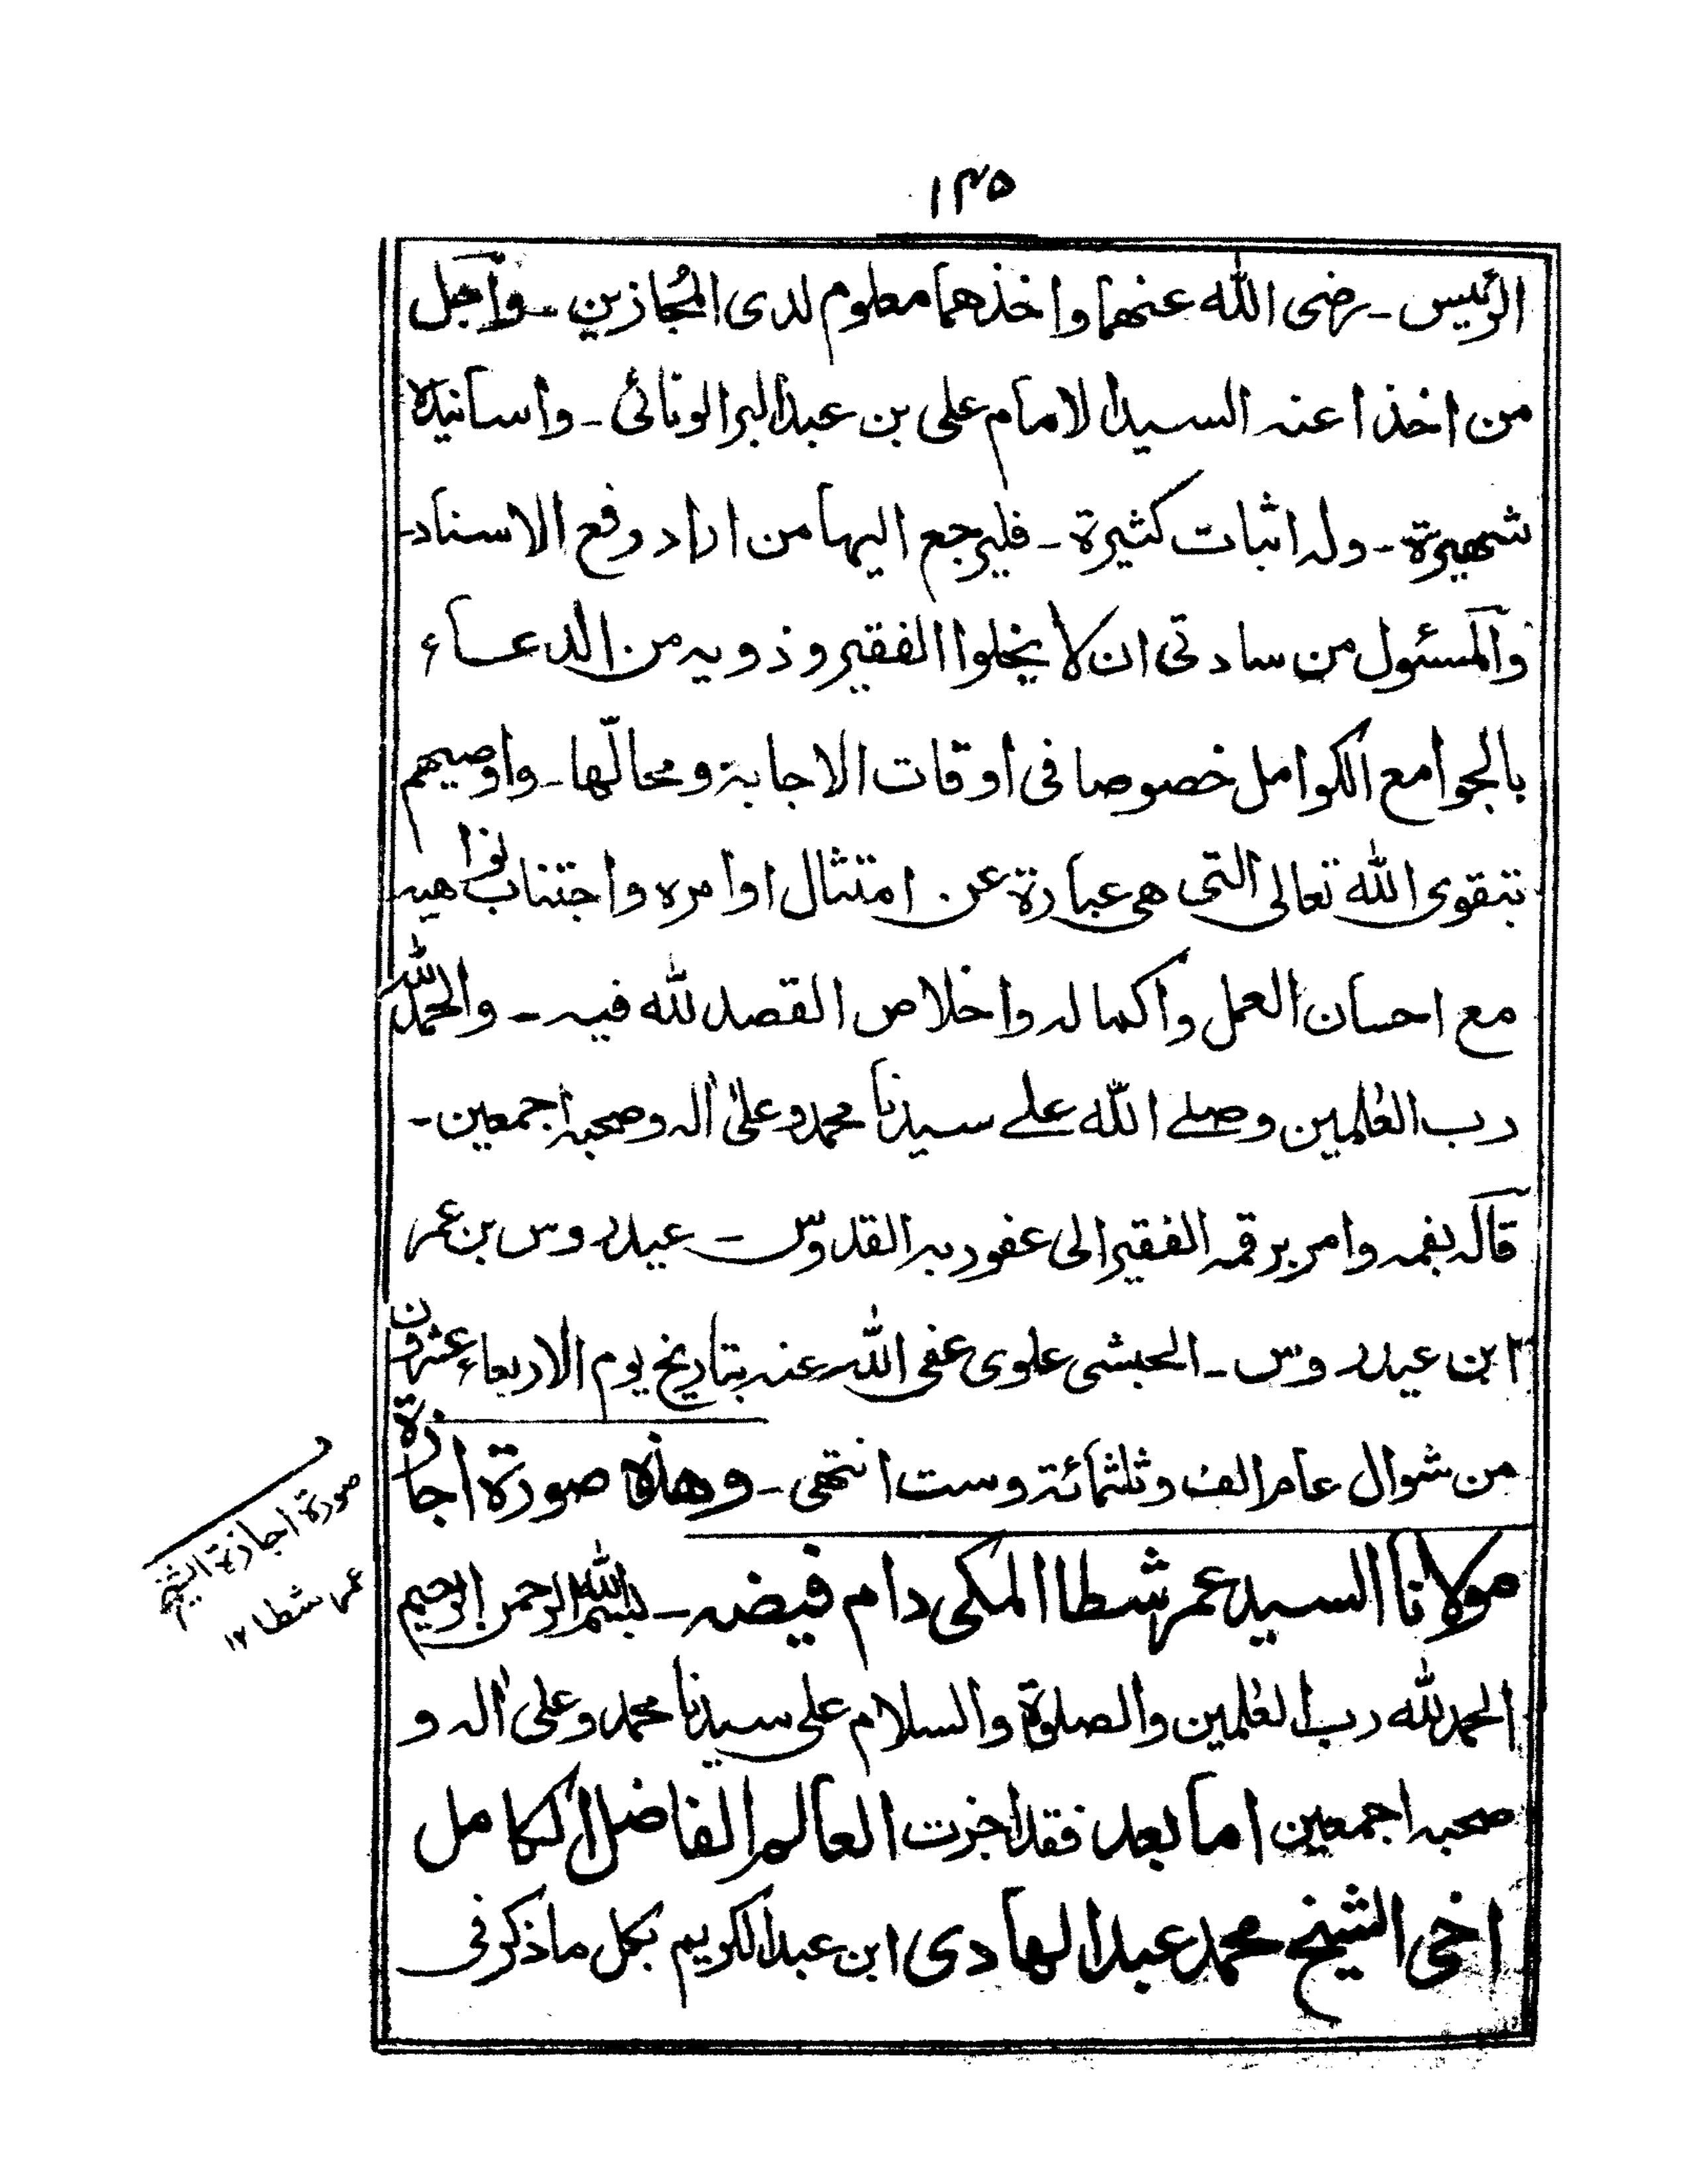 ١٣٥
الرئيس ۔ رضى الله عنهما واخذهما معلوم لدى المُجازين ۔ وأجل
من اخذا عنه السيد الامام على بن عبد البر الونائى ۔ واسانيده
شهيرة ۔ وله اثبات كثيرة ۔ فليرجع اليها من اراد رفع الاسناد ۔
والمسئول من سادتى ان لا يخلوا الفقير وذويه من الدعاء
بالجوامع الكوامل خصوصا فى اوقات الاجابة ومحالّها ۔ واوصيهم
بتقوى الله تعالى التى هى عبارة عن امتثال اوامره واجتناب نواهيه
مع احسان العمل واكماله واخلاص القصد لله فيه ۔ والحمد لله
رب العٰلمين وصلے الله علے سيدنا محمد وعلىٰ اٰله وصحبه اجمعين ۔
قاله بفمه وامر برقمه الفقير الى عفو ربه القدوس ۔ عيدروس بن عمر
ابن عيدروس ۔ الحبشى علوى عفى الله عنه بتاريخ يوم الاربعاء عشرون
من شوال عام الف وثلثمائة وست انتهى ۔ وهذه صورة اجازة
مولانا السيد عمر شطا المكى دام فيضه ۔ بسم الله الرحمن الرحيم
الحمد لله رب العٰلمين والصلوة والسلام على سيدنا محمد وعلى اٰله و
صحبه اجمعين اما بعد فقد اجزت العالم الفاضل الكامل
اخى الشيخ محمد عبد الهادى ابن عبد الكريم بكل ما ذكر فى
صورة اجازة الشيخ
عمر شطا ١٢